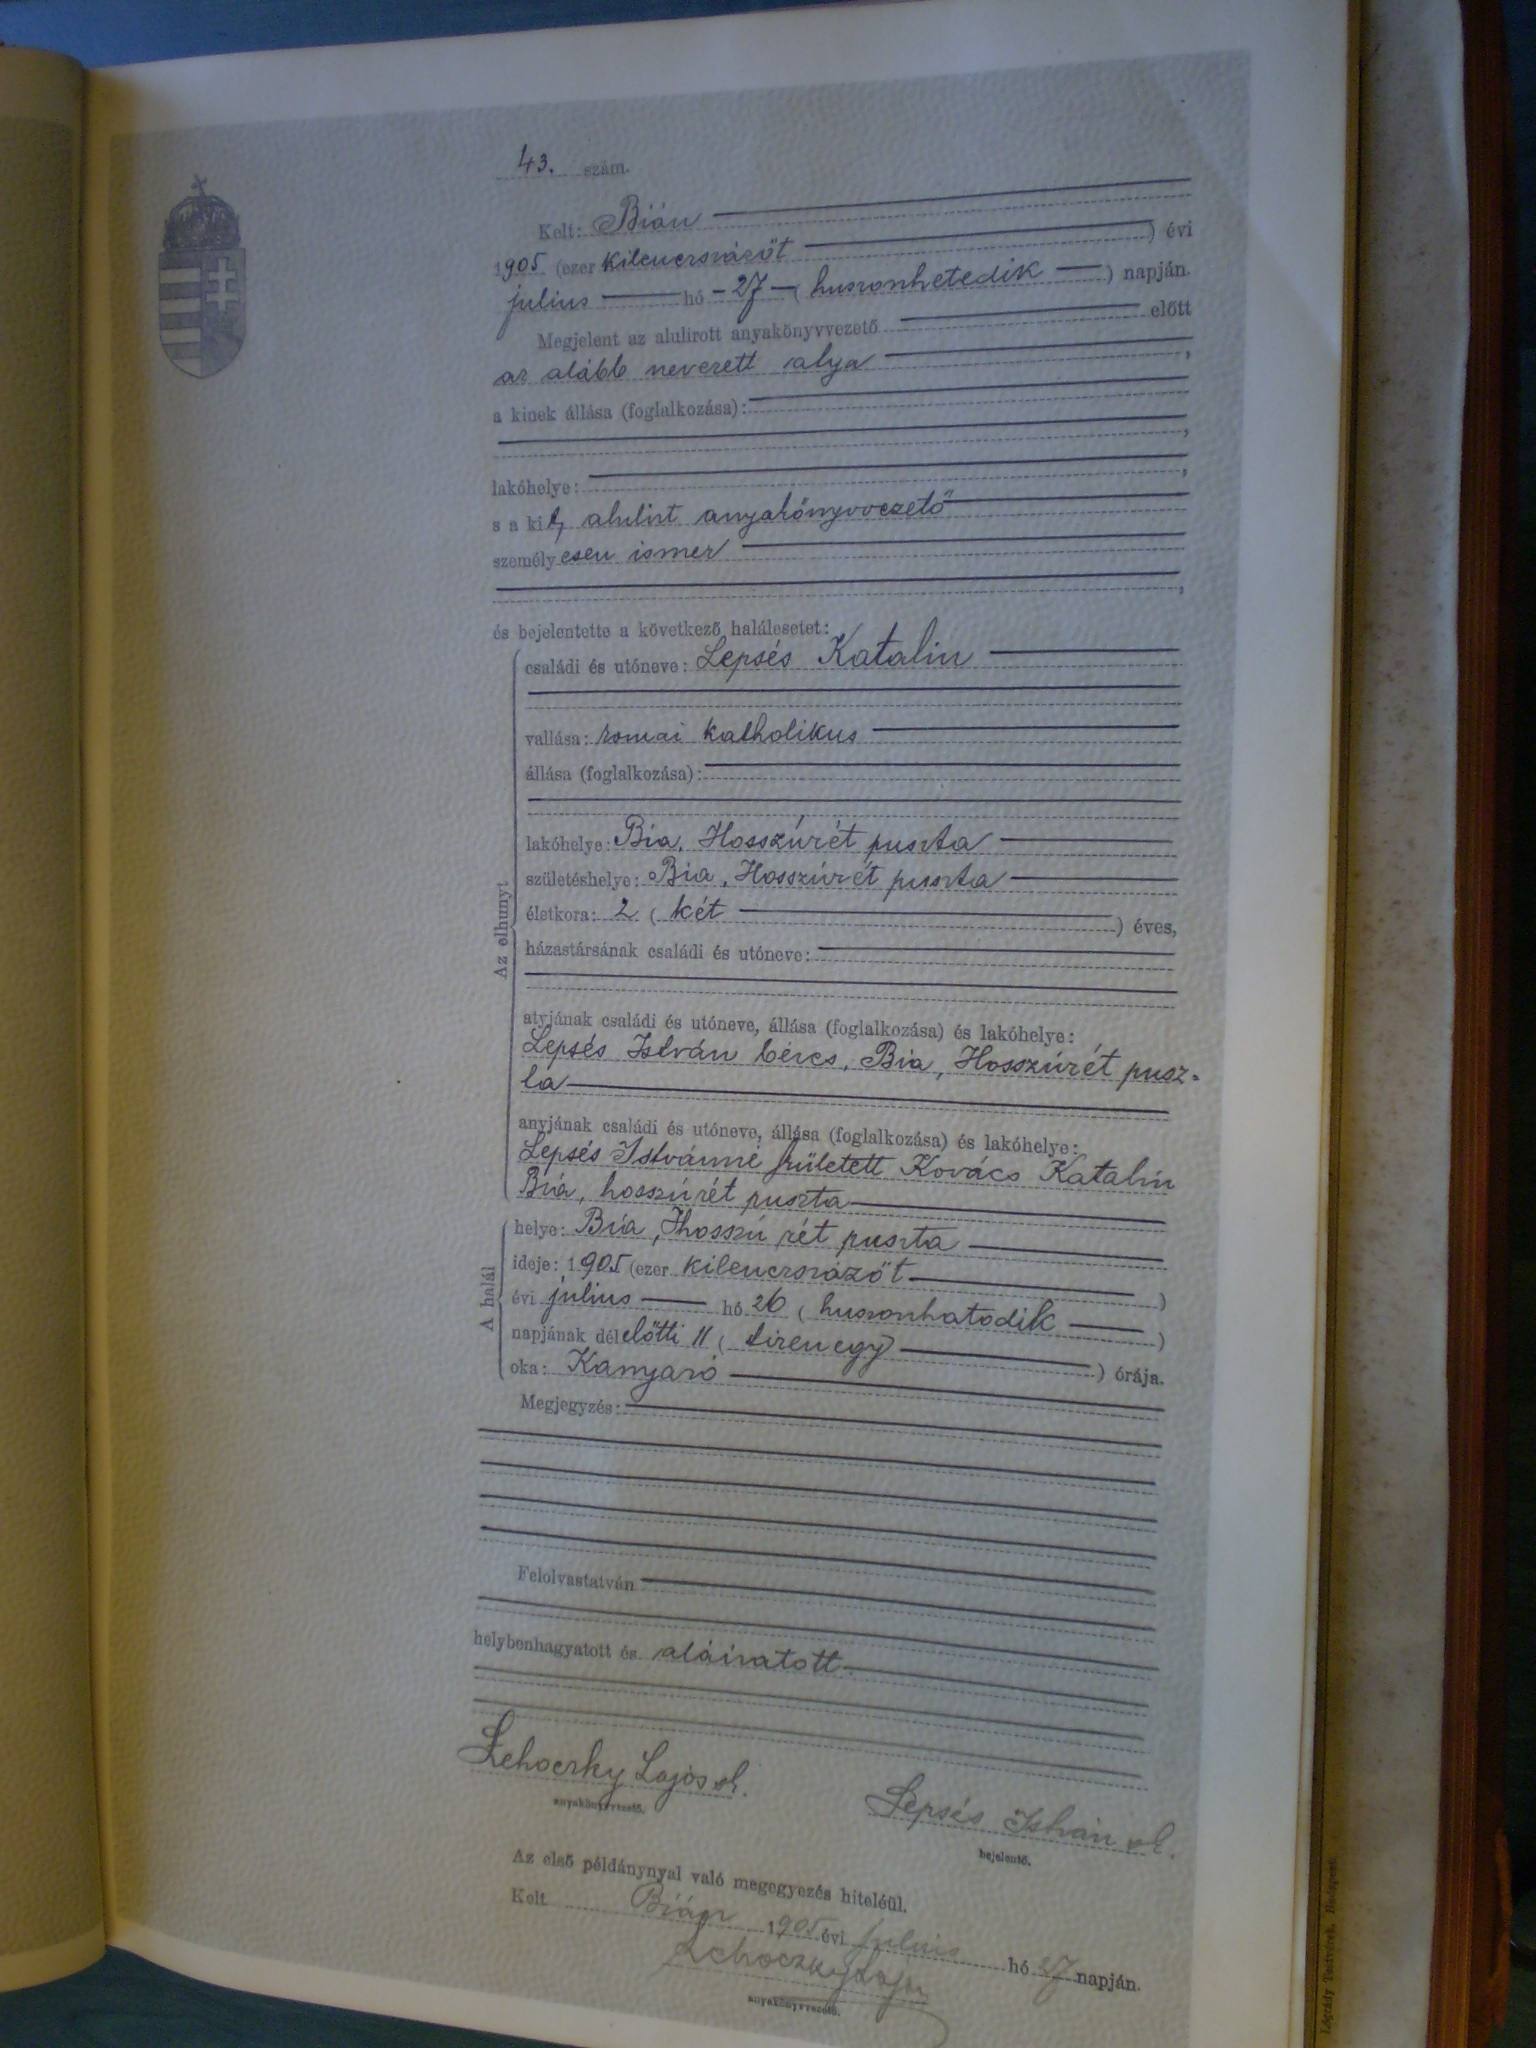 43. szám.
Kelt: Bián
1905 (ezer kilencszázöt ) évi
július hó 27 ( huszonhetedik ) napján.
Megjelent az alulirott anyakönyvvezető előtt
az alább nevezett atya ,
a kinek állása (foglalkozása):
,
lakóhelye: ,
s a kit, alulirt anyakönyvvezető
személyesen ismer
,
és bejelentette a következő halálesetet:
családi és utóneve: Lepsés Katalin
vallása: romai katholikus
állása (foglalkozása):
lakóhelye: Bia, Hosszúrét puszta
születéshelye: Bia, Hosszúrét puszta
Az elhunyt
életkora: 2 ( két ) éves,
házastársának családi és utóneve:
atyjának családi és utóneve, állása (foglalkozása) és lakóhelye:
Lepsés István béres, Bia, Hosszúrét pusz-
ta
anyjának családi és utóneve, állása (foglalkozása) és lakóhelye:
Lepsés Istvánné született Kovács Katalin
Bia, hosszúrét puszta
A halál
helye: Bia, Hosszú rét puszta
ideje: 1905 (ezer kilencszázöt )
évi július hó 26 ( huszonhatodik )
napjának délelőtti 11 ( tizenegy ) órája.
oka: Kanyaró
Megjegyzés:
Felolvastatván
helybenhagyatott és aláiratott.
Lehoczky Lajos sk.
anyakönyvvezető.
Lepsés István sk.
bejelentő.
Az első példánynyal való megegyezés hiteléül.
Kelt Bián 1905 évi július hó 27 napján.
Lehoczky Lajos
anyakönyvvezető.
Légrády Testvérek, Budapest.